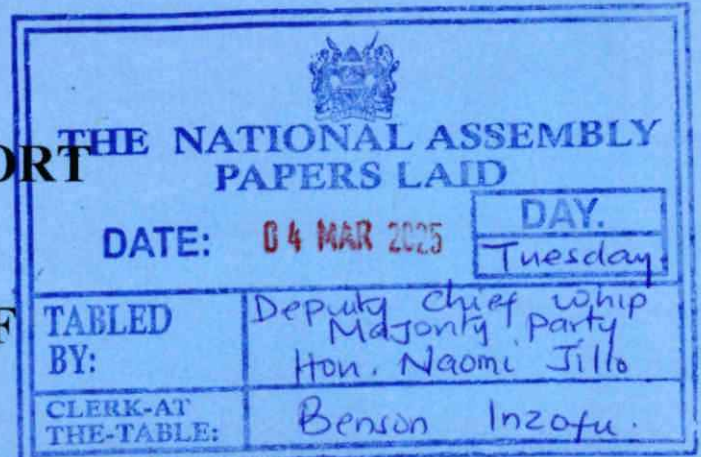 ORT
F
THE NATIONAL ASSEMBLY
PAPERS LAID
DATE: 04 MAR 2025
DAY.
Tuesday.
TABLED BY:
Deputy Chief Whip
Majority Party
Hon. Naomi Jillo
CLERK-AT
THE-TABLE:
Benson Inzofu.